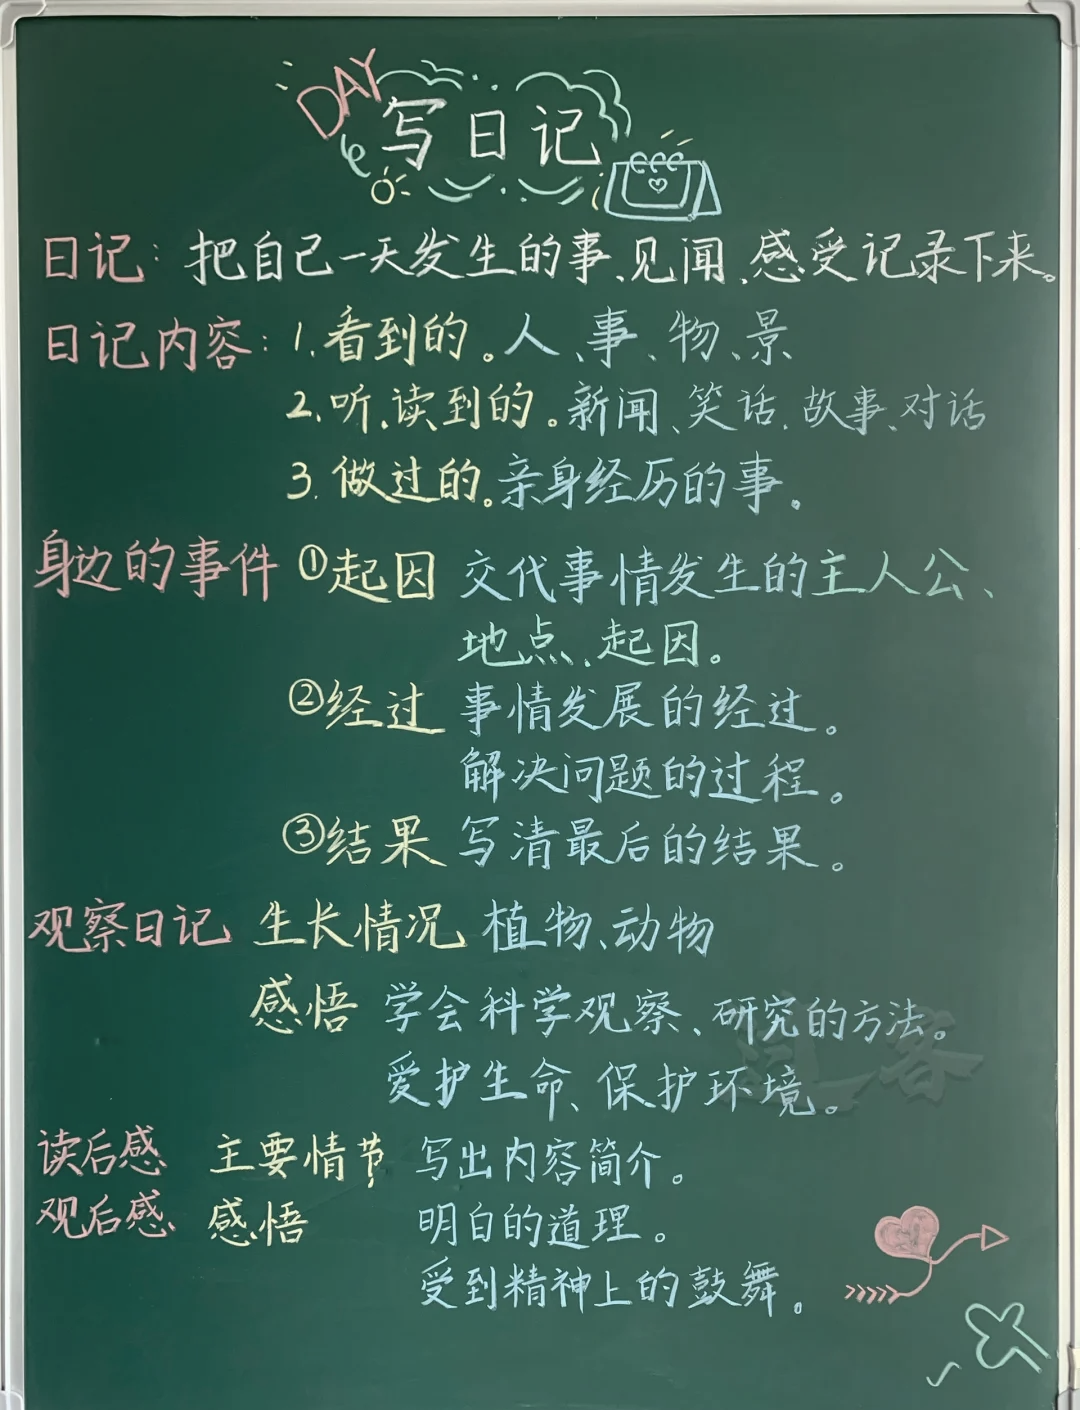 DAY
写日记
日记：把自己一天发生的事、见闻、感受记录下来。
日记内容：1.看到的。人、事、物、景
2.听、读到的。新闻、笑话、故事、对话
3.做过的。亲身经历的事。
身边的事件 ①起因 交代事情发生的主人公、
地点、起因。
②经过 事情发展的经过。
解决问题的过程。
③结果 写清最后的结果。
观察日记 生长情况 植物、动物
感悟 学会科学观察、研究的方法。
爱护生命、保护环境。
读后感 主要情节 写出内容简介。
观后感 感悟 明白的道理。
受到精神上的鼓舞。